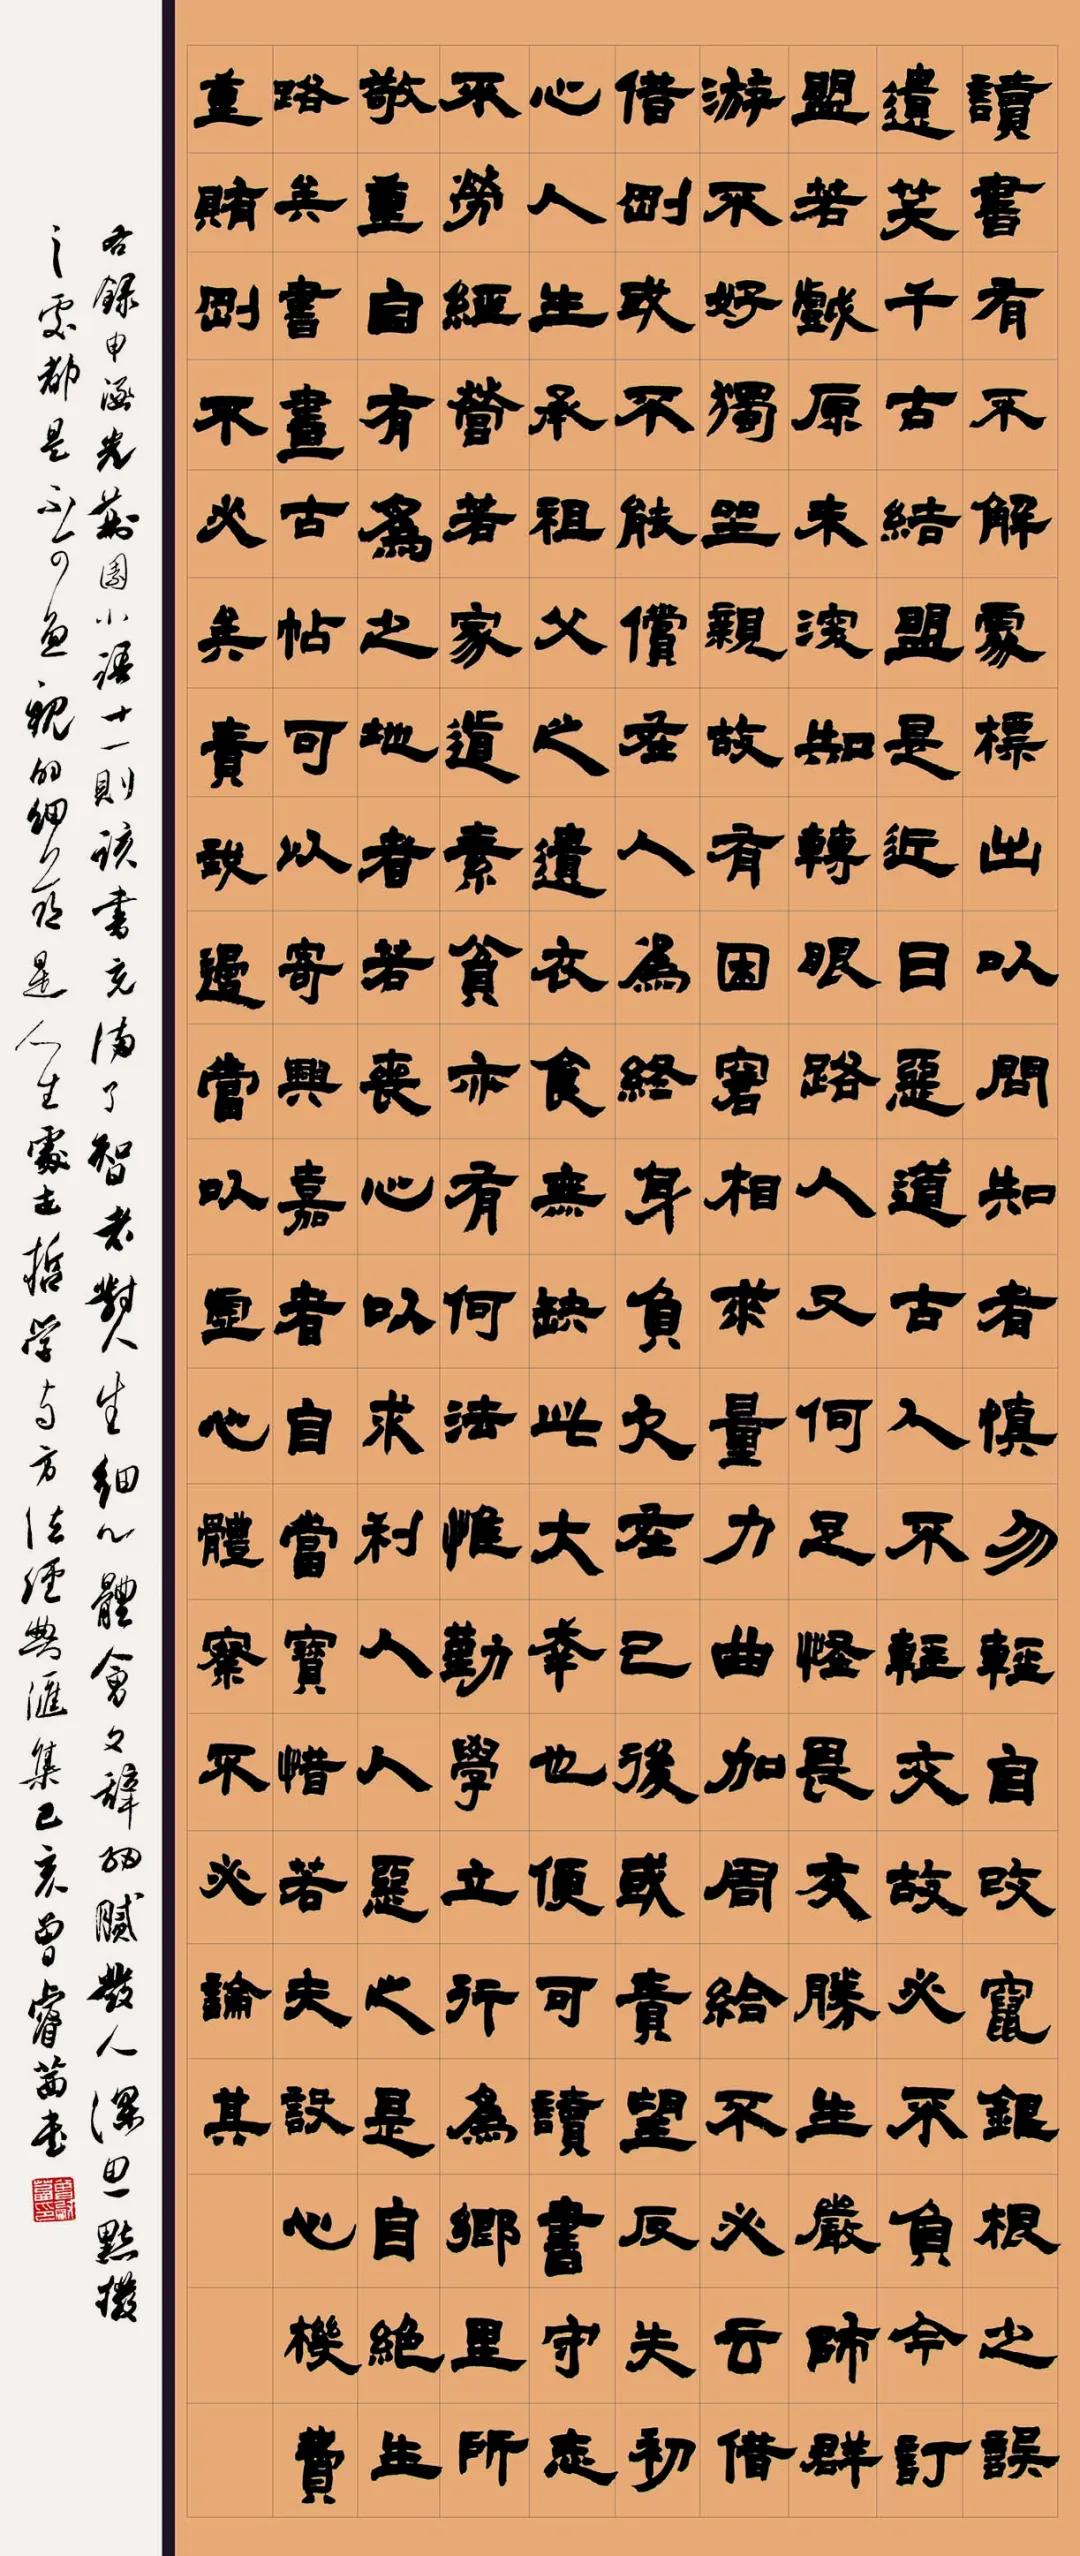 讀書有不解處標出以問知者慎勿輕自改竄銀根之誤
遺笑千古結盟是近日惡道古人不輕交故必不負今訂
盟若戲原未深知轉眼路人又何足怪畏友勝生嚴師群
游不好獨坐親故有困窘相求量力曲加周給不必云借
借則或不能償在人為終身負欠在己後或責望反失初
心人生承祖父之遺衣食無缺此大幸也便可讀書守志
不勞經營若家道素貧亦有何法惟勤學立行為鄉里所
敬重自有為之地者若喪心以求利人人惡之是自絕生
路矣書畫古帖可以寄興嘉者自當寶惜若夫設心機費
重賄則不必矣責我過當以虛心體察不必論其
右錄申涵光荊園小語廿一則該書充滿了智者對人生細心體會文辭細膩發人深思點撥
之處都是不可忽視的細節是人生處世哲学与方法經典匯集己亥曾睿茵書